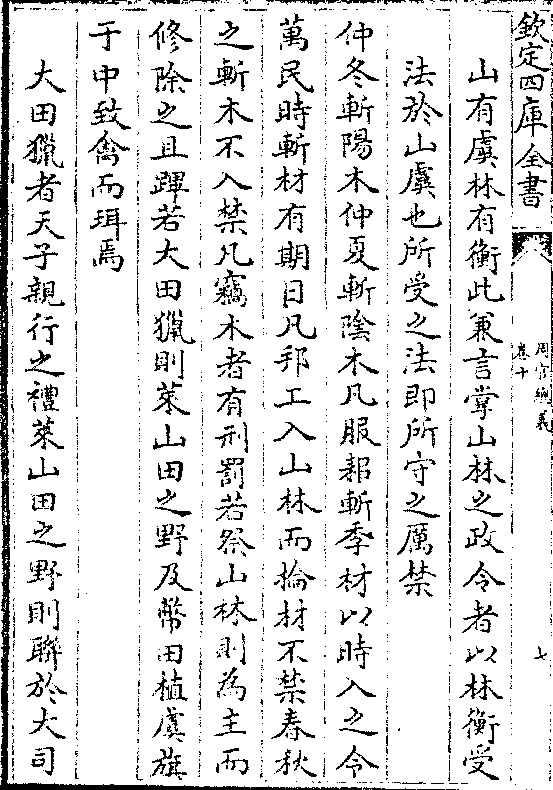 欽定四庫全書
周官總義
卷十
七
山有虞林有衡此兼言掌山林之政令者以林衡受
法於山虞也所受之法即所守之厲禁
仲冬斬陽木仲夏斬陰木凡服耜斬季材以時入之令
萬民時斬材有期日凡邦工入山林而掄材不禁春秋
之斬木不入禁凡竊木者有刑罰若祭山林則為主而
修除之且蹕若大田獵則萊山田之野及幣田植虞旗
于中致禽而珥焉
大田獵者天子親行之禮萊山田之野則聯於大司